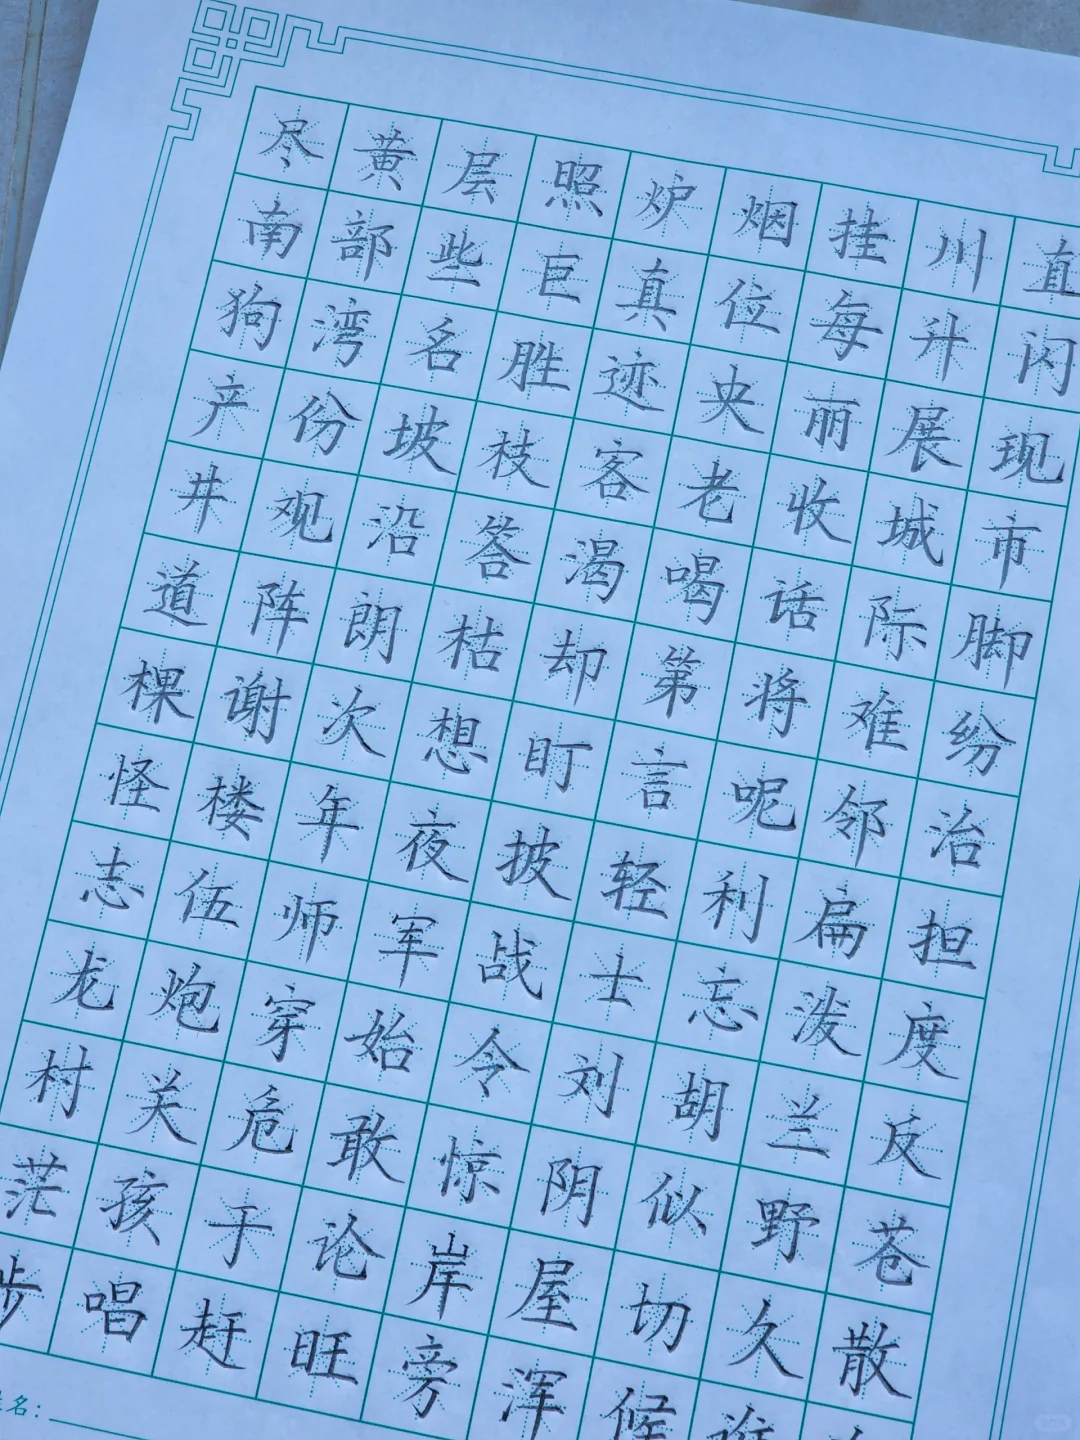 尽黄层照炉烟挂川直
南部些巨真位每升闪
狗湾名胜迹央丽展现
产份坡枝客老收城市
井观沿答渴喝话际脚
道阵朗枯却第将难纷
棵谢次想盯言呢邻治
怪楼年夜披轻利扁担
志伍师军战士忘泼度
龙炮穿始令刘胡兰反
村关危敢惊阴似野苍
茫孩于论岸屋切久散
步唱赶旺旁浑候谁
姓名: